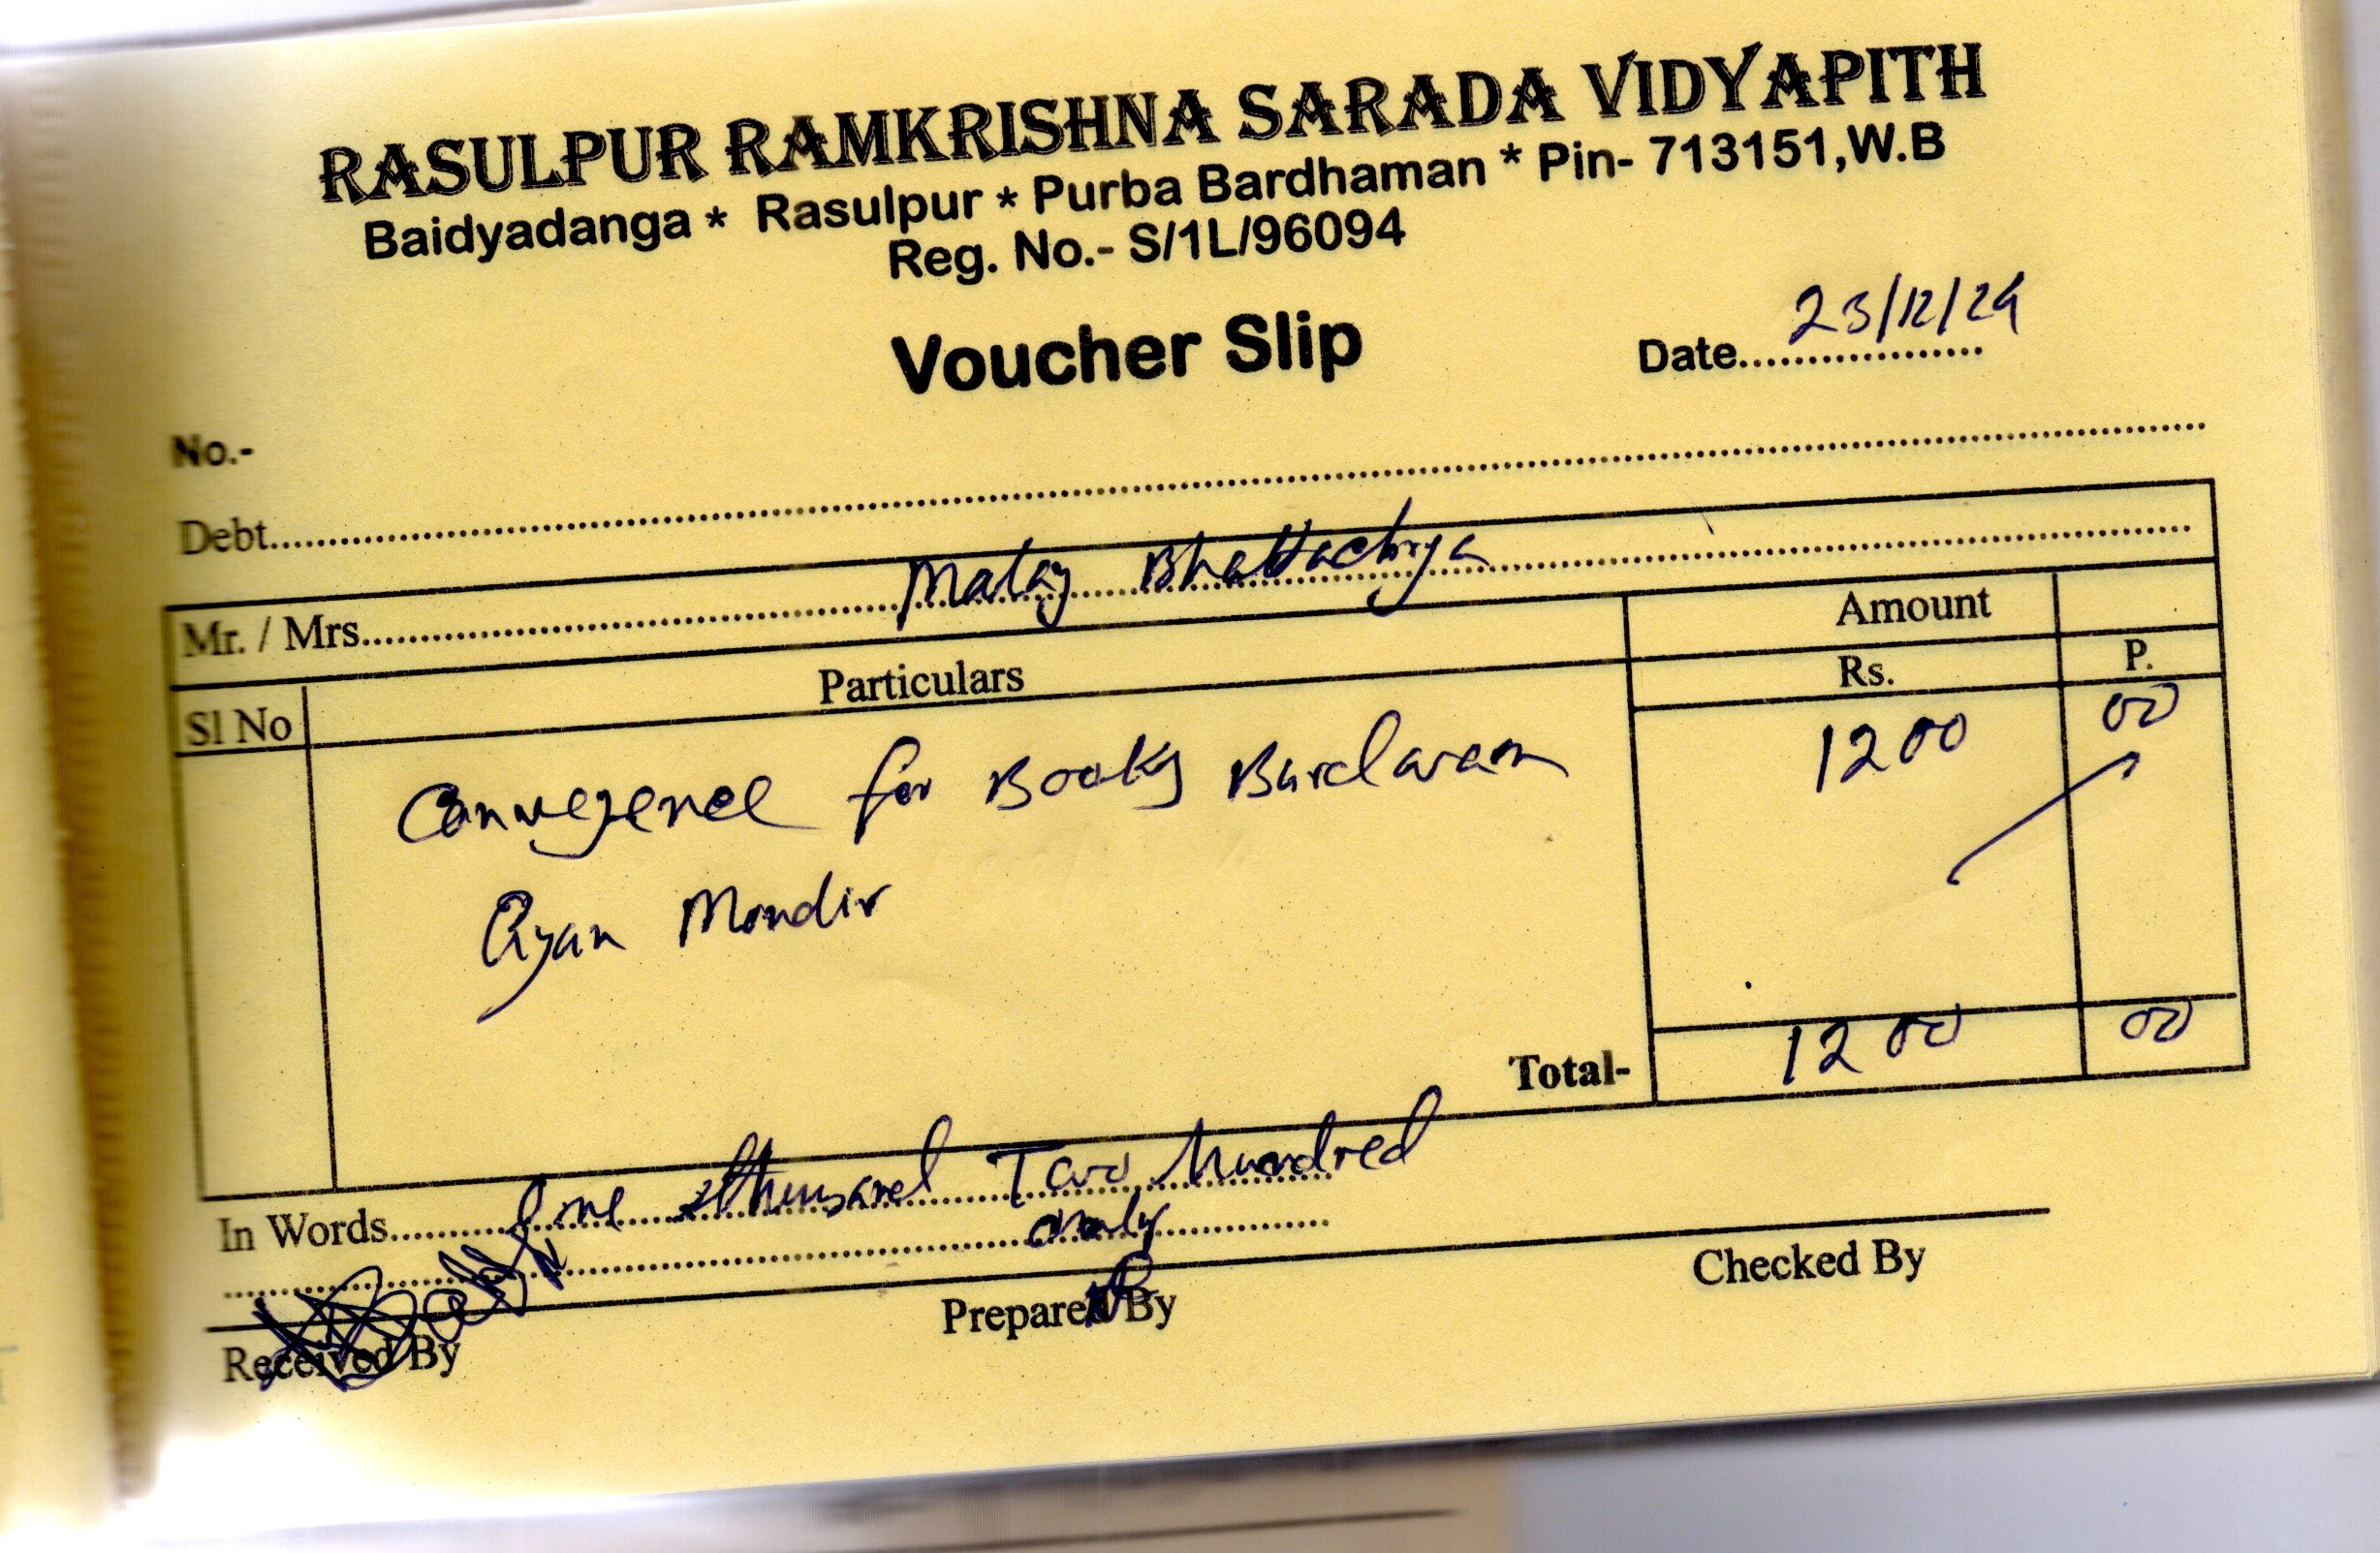 RASULPUR RAMKRISHNA SARADA VIDYAPITH
Baidyadanga * Rasulpur * Purba Bardhaman * Pin- 713151,W.B
Reg. No.- S/1L/96094
Voucher Slip
Date.................. 23/12/24
No.-
Debt..........
Mr. / Mrs.......... Malay Bhattachrya
Sl No Particulars Amount
Rs. P.
Convegence for Books Bardawan 1200 00
Gyan Mondir
Total- 1200 00
In Words.......... One thousand Two hundred
only
Received By Prepared By Checked By